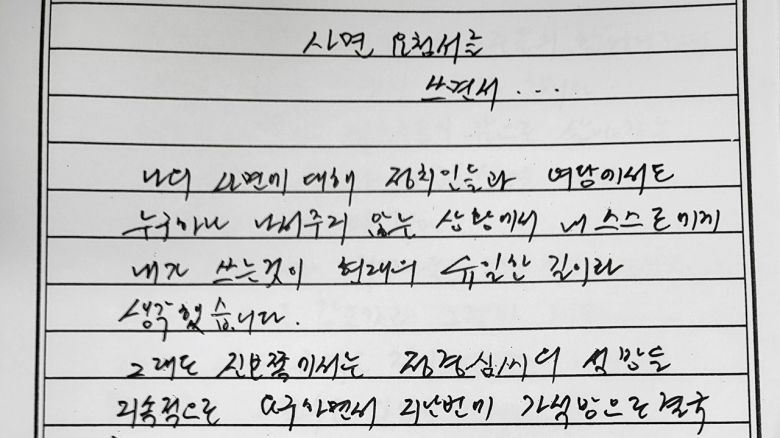 사면 요청서를
쓰면서...
나의 사면에 대해 정치인들과 여당에서도
누구하나 나서주지 않는 상황에서 내 스스로에게
내가 쓰는것이 현재의 유일한 길이라
생각했습니다.
그래도 진보쪽에서는 정경심씨의 석방을
지속적으로 요구하면서 지난번에 가석방으로 결국